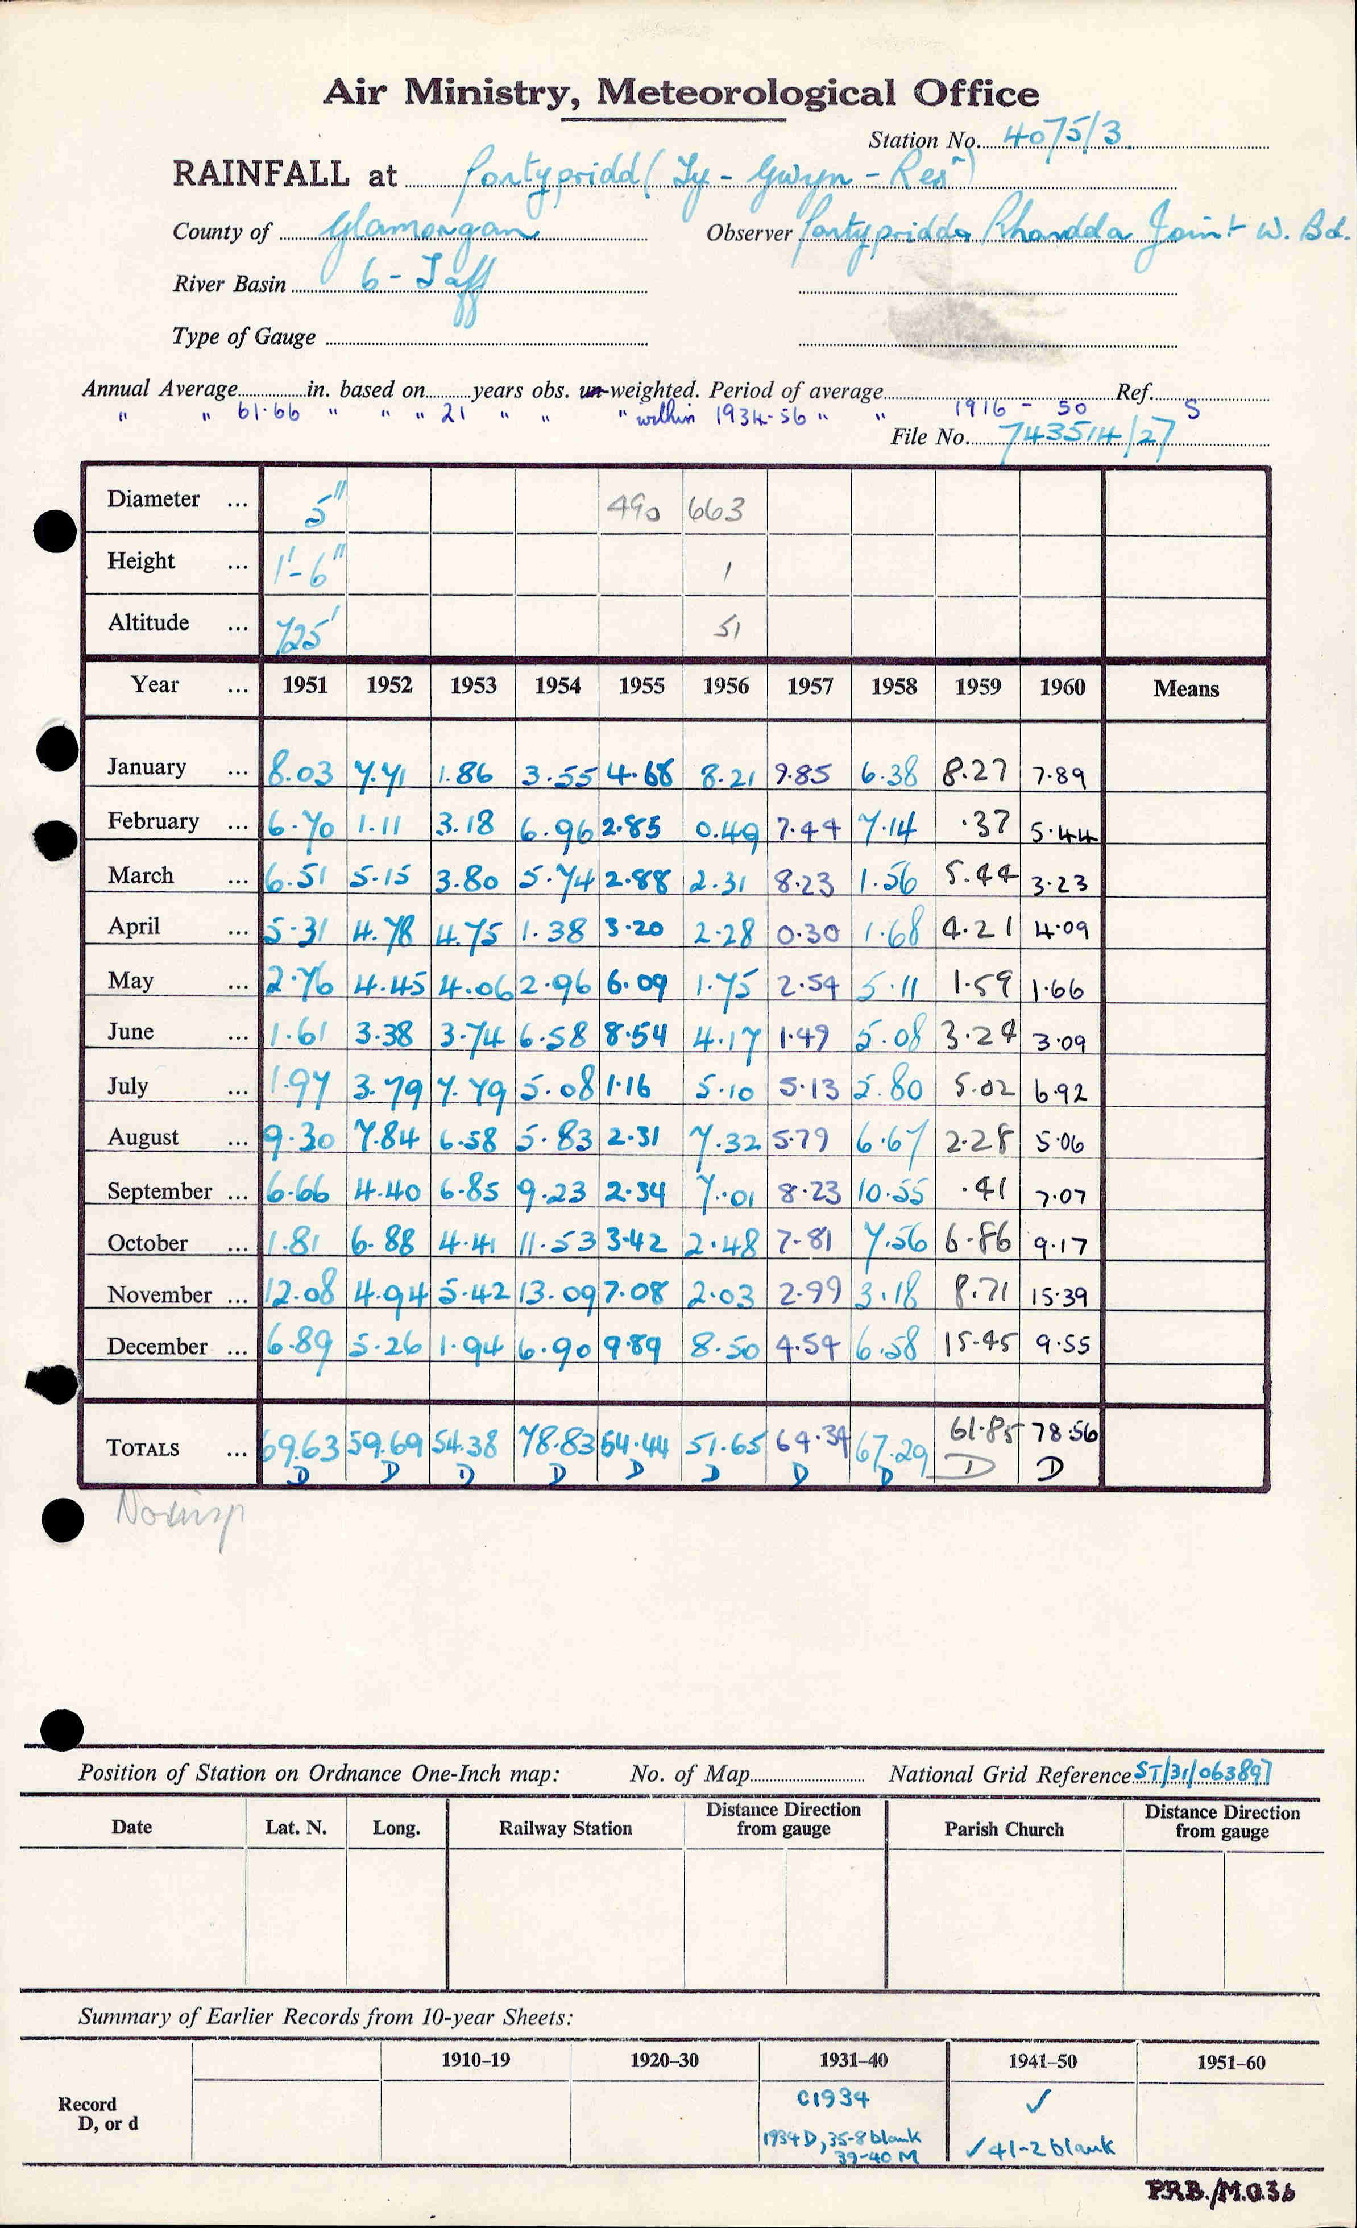 Air Ministry, Meteorological Office
Station No. 4075/3
RAINFALL at Pontypridd (Ty-Gwyn-Resr)
County of Glamorgan Observer Pontypridd & Rhondda Joint W. Bd.
River Basin 6 - Taff
Type of Gauge
Annual Average in. based on years obs. un-weighted. Period of average Ref.
" " 61.66 " " " 21 " " " within 1934-56 " " 1916 - 50 S
File No. 743514/27
Diameter ... 5" 490 663
Height ... 1'-6" 1
Altitude ... 725' 51
Year ... 1951 1952 1953 1954 1955 1956 1957 1958 1959 1960 Means
January ... 8.03 7.71 1.86 3.55 4.68 8.21 9.85 6.38 8.27 7.89
February ... 6.70 1.11 3.18 6.96 2.85 0.49 7.44 7.14 .37 5.44
March ... 6.51 5.15 3.80 5.74 2.88 2.31 8.23 1.56 5.44 3.23
April ... 5.31 4.78 4.75 1.38 3.20 2.28 0.30 1.68 4.21 4.09
May ... 2.76 4.45 4.06 2.96 6.09 1.75 2.54 5.11 1.59 1.66
June ... 1.61 3.38 3.74 6.58 8.54 4.17 1.49 5.08 3.24 3.09
July ... 1.97 3.79 7.79 5.08 1.16 5.10 5.13 5.80 5.02 6.92
August ... 9.30 7.84 6.58 5.83 2.31 7.32 5.79 6.67 2.28 5.06
September ... 6.66 4.40 6.85 9.23 2.34 7.01 8.23 10.55 .41 7.07
October ... 1.81 6.88 4.41 11.53 3.42 2.48 7.81 7.56 6.86 9.17
November ... 12.08 4.94 5.42 13.09 7.08 2.03 2.99 3.18 8.71 15.39
December ... 6.89 5.26 1.94 6.90 9.89 8.50 4.54 6.58 15.45 9.55
TOTALS ... 69.63 59.69 54.38 78.83 54.44 51.65 64.34 67.29 61.85 78.56
D D D D D D D D D D
No insp
Position of Station on Ordnance One-Inch map: No. of Map National Grid Reference ST/31/063897
Date Lat. N. Long. Railway Station Distance Direction from gauge Parish Church Distance Direction from gauge
Summary of Earlier Records from 10-year Sheets:
1910-19 1920-30 1931-40 1941-50 1951-60
Record C1934 ✓
D, or d 1934 D, 35-8 blank ✓ 41-2 blank
39-40 M
P.R.B./M.O.36